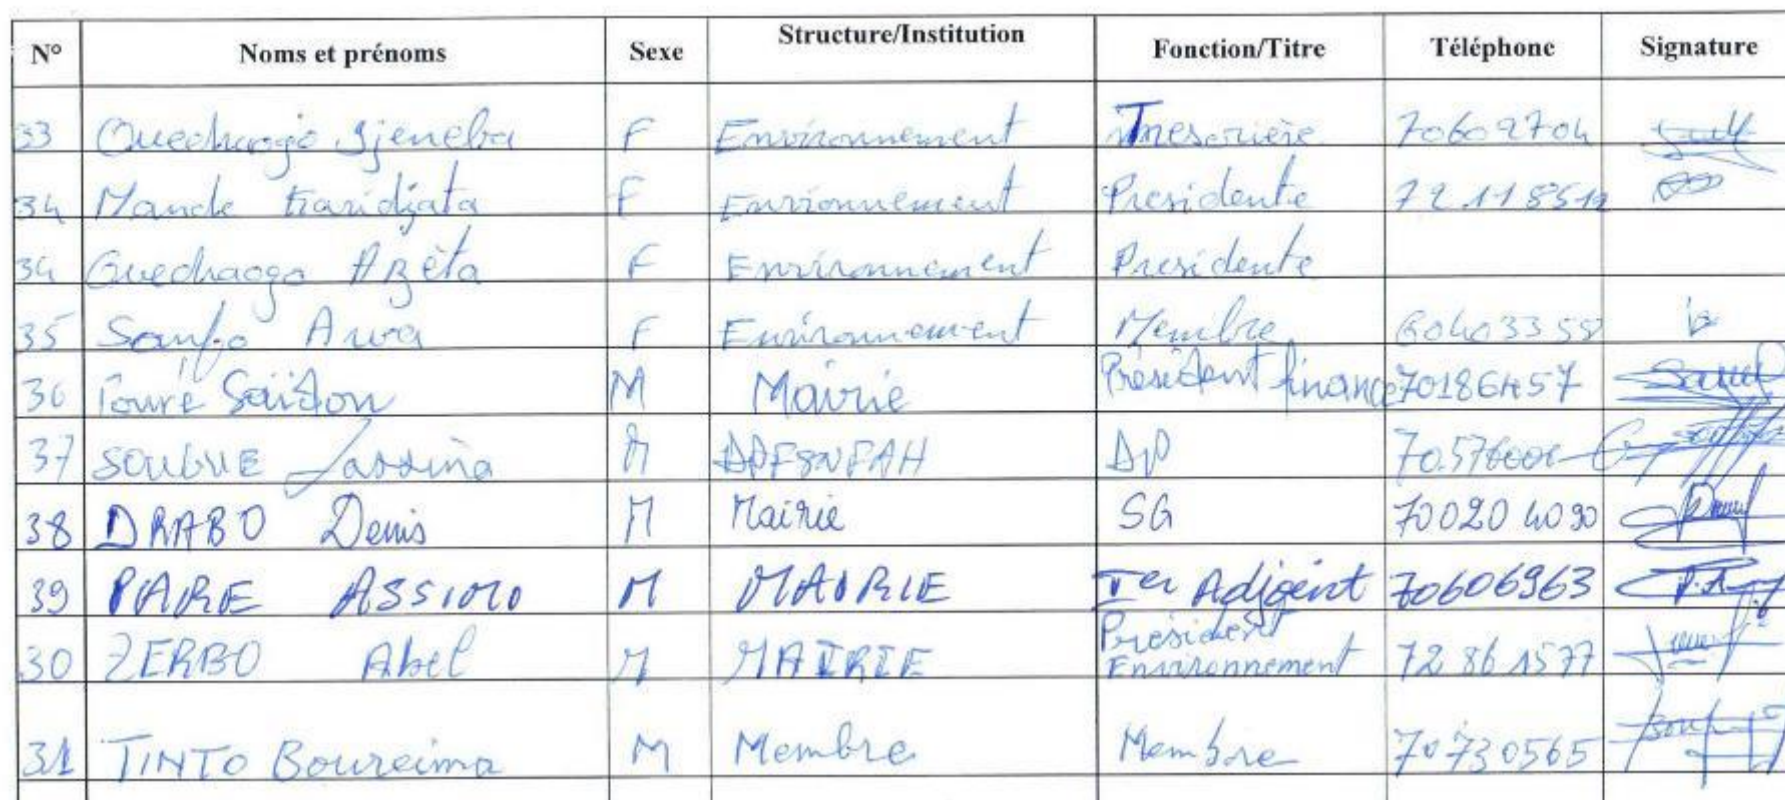 N° Noms et prénoms Sexe Structure/Institution Fonction/Titre Téléphone Signature
33 Ouedraogo Djeneba F Environnement Tresorière 70602704
34 Mande F Environnement Presidente 72 11 85
34 Ouedraogo Azèta F Environnement Presidente
35 Sanfo Awa F Environnement Membre 604033
36 Touré Saïdou M Mairie Président finance 70186457
37 SOUGUE Lassina M DP
38 DRABO Denis M Mairie SG 70020 4090
39 PARE ASSIMO M MAIRIE Ier Adjoint 70606963
30 ZERBO Abel M MAIRIE Président
Environnement 72 86 1577
31 TINTO Boureima M Membre Membre 70730565